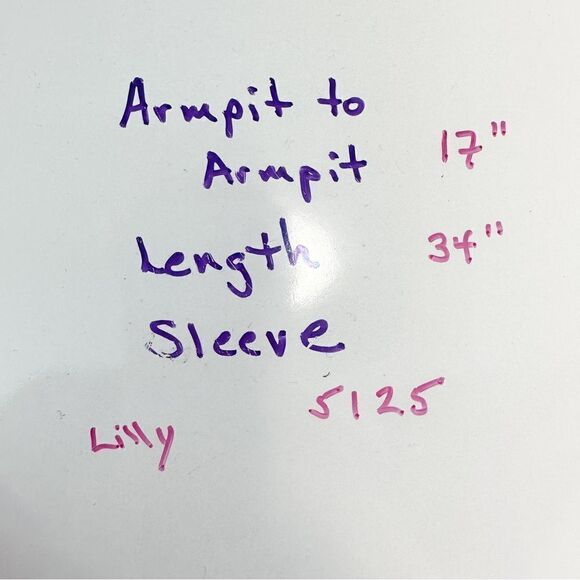 Armpit to
Armpit 17"
Length 34"
Sleeve
5125
Lilly